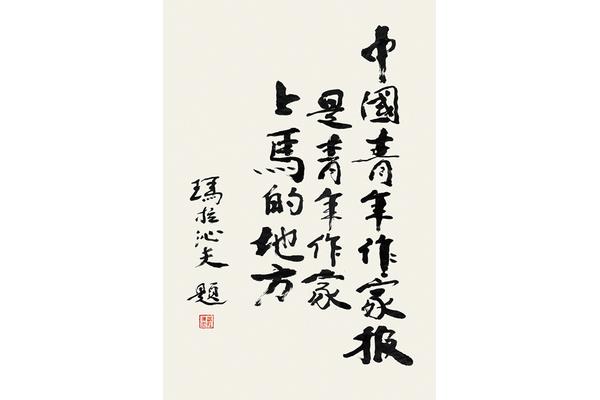 中國青年作家报
是青年作家
上馬的地方
瑪拉沁夫 題